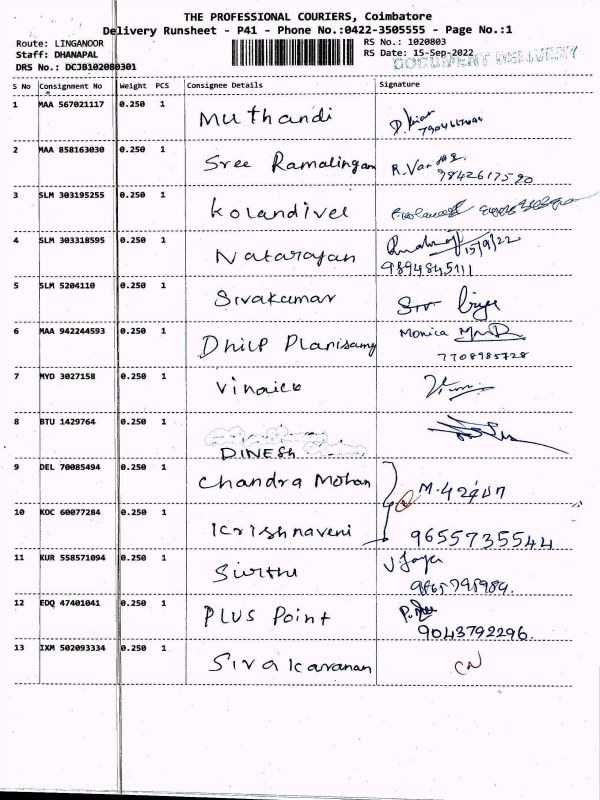 THE PROFESSIONAL COURIERS, Coimbatore
Delivery Runsheet - P41 - Phone No.:0422-3505555 - Page No.:1
Route: LINGANOOR RS No.: 1020803
Staff: DHANAPAL RS Date: 15-Sep-2022
DOCUMENT DELIVERY
DRS No.: DCJB102080301
S No Consignment No Weight PCS Consignee Details Signature
1 MAA 567021117 0.250 1 Muthandi
2 MAA 858163030 0.250 1 Sree Ramalingam R.
9842617590
3 SLM 303195255 0.250 1 Kolandivel
4 SLM 303318595 0.250 1 Natarajan 15/9/22
9894845111
5 SLM 5204110 0.250 1 Sivakumar
6 MAA 942244593 0.250 1 Dhilp Planisamy Monica
7708985728
7 MYD 3027158 0.250 1
8 BTU 1429764 0.250 1
DINESh
9 DEL 70085494 0.250 1 Chandra Mohan
10 KOC 60077284 0.250 1 Krishnaveni 9655735544
11 KUR 558571094 0.250 1
9865798989.
12 EDQ 47401041 0.250 1 PLUS Point
9043792296.
13 IXM 502093334 0.250 1 Sivakaranan CN